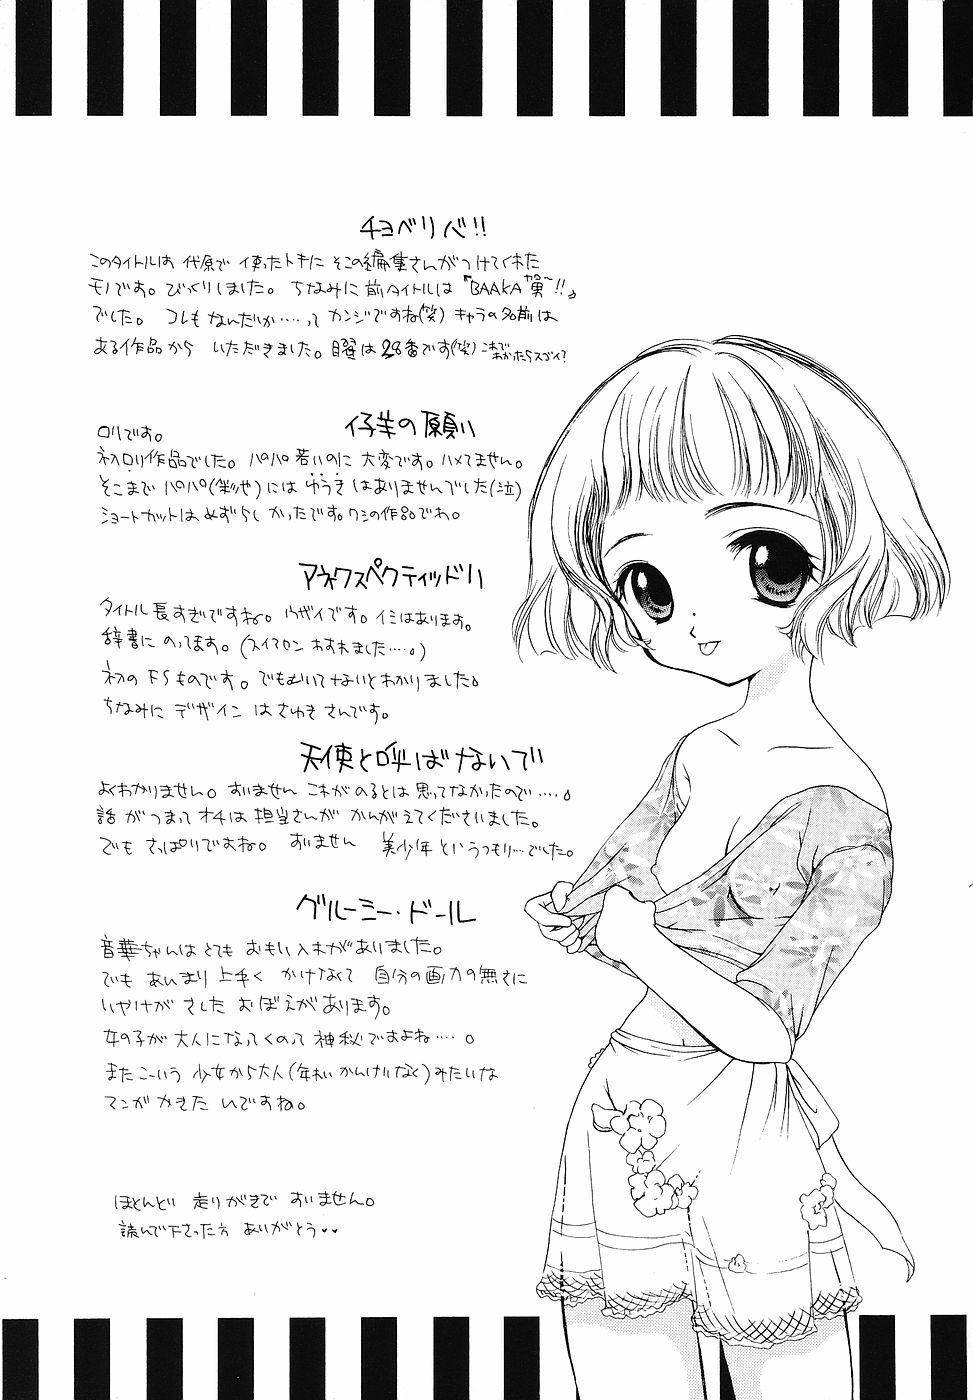 チョベリバ!!
このタイトルは 代原で 使ったトキに そこの編集さんがつけてくれた
モノです。びっくりしました。ちなみに 前タイトルは『BAAKA男〜!!』
でした。コレもなんだか……って カンジですね(笑) キャラの名前は
ある作品から いただきました。日曜は28番です(笑) これで
わかったらスゴイ?
仔羊の願い
ロリです。
初ロリ作品でした。パパ若いのに 大変です。ハメてません。
そこまで パパ(彩や)には ゆうきはありませんでした(泣)
ショートカットはめずらしかったです。ワシの作品でわ。
アネクスペクティッドリィ
タイトル長すぎですね。ウザイです。イミはあります。
辞書に のってます。(スイマセン わすれました……。)
初の FSものです。でもむいてないとわかりました。
ちなみに デザイン はさゆき さんです。
天使と呼ばないで
よくわかりません。すいません これがのるとは思ってなかったので……。
話 がつまって オチは 担当さんが かんがえてくださいました。
でも さっぱりですね。 すいません 美少年というつもり…でした。
グルーミー・ドール
音華ちゃんは とても おもい入れがありました。
でも あんまり 上手く かけなくて 自分の画力の無さに
いやけが さした おぼえがあります。
女の子が 大人になってくのって 神秘ですよね……。
またこーいう 少女から大人(年れいかんけいなく)みたいな
マンガ かきたいですね。
ほとんど 走りがきで すいません。
読んで下さった方 ありがとう